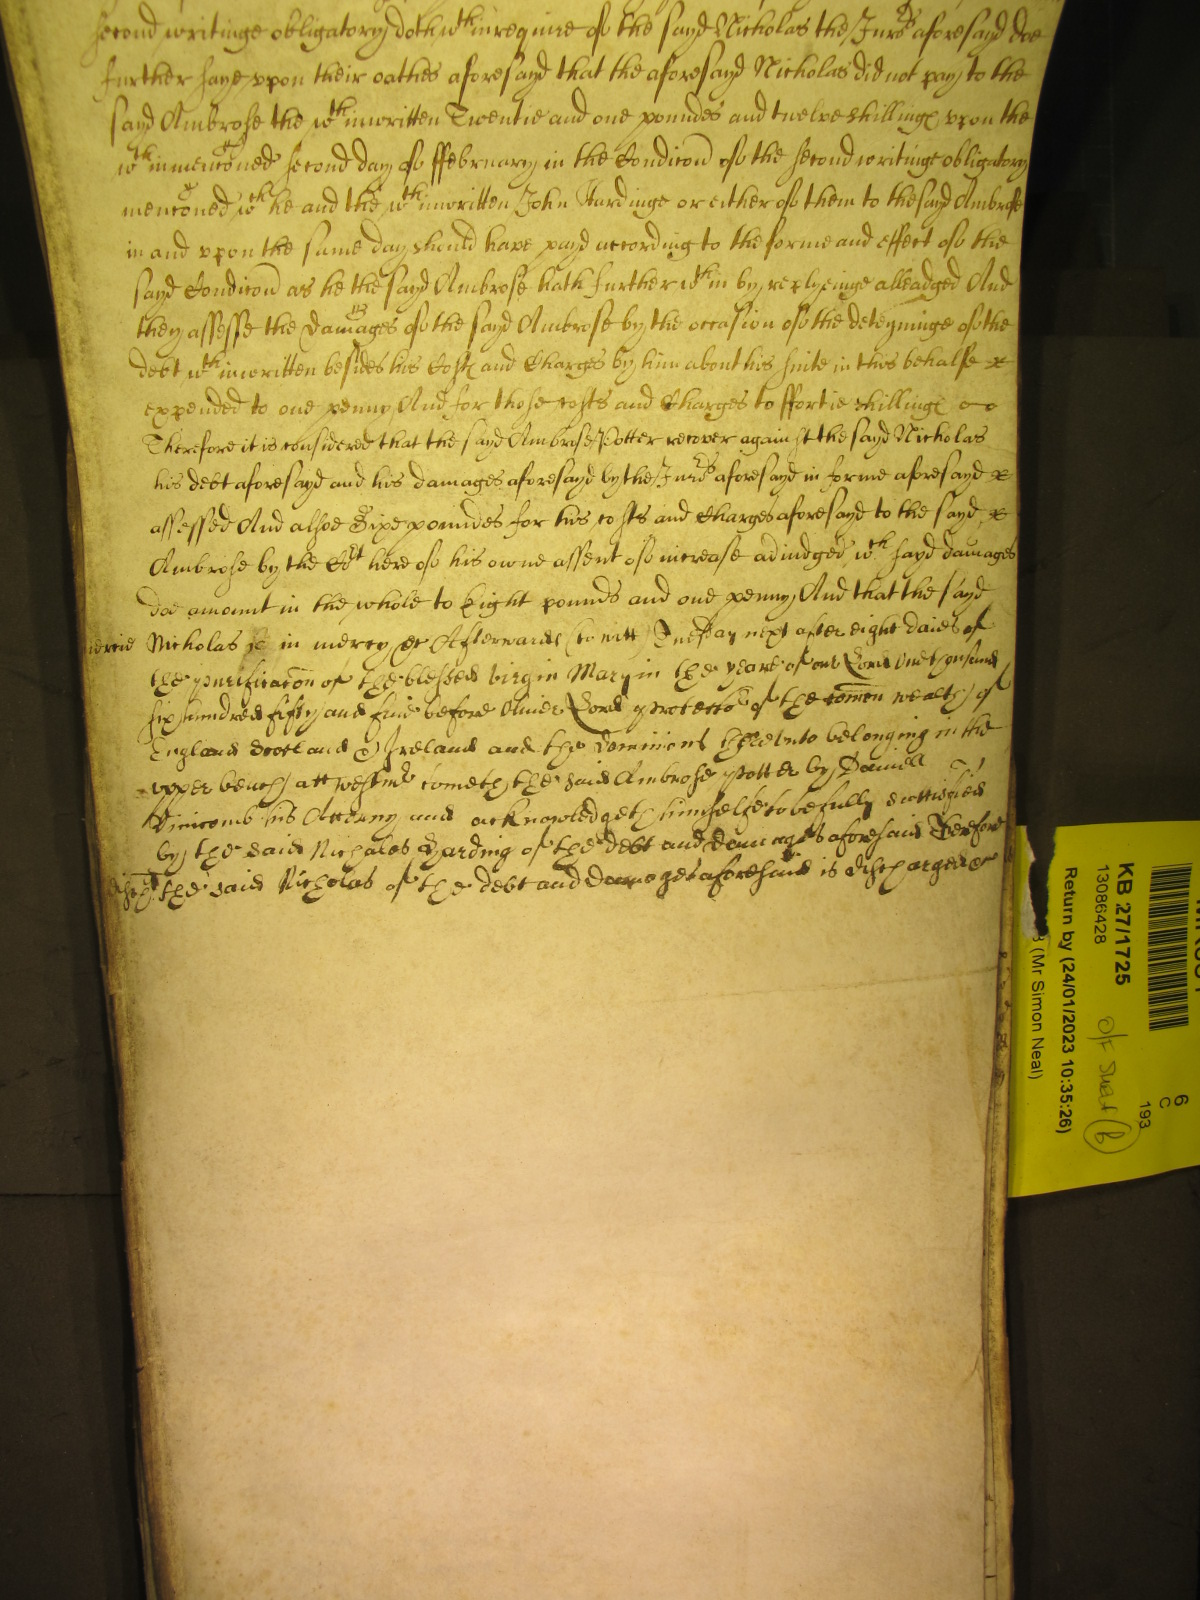 second writinge obligatory doth wthin require of the sayd Nicholas the Jurs aforesayd doe
further saye vpon their oathes aforesayd that the aforesayd Nicholas did not pay to the
sayd Ambrose the wthinwritten Twentie and one poundes and twelve shillings vpon the
wthinmenconed second day of ffebruary in the Condicon of the second writinge obligatory
menconed wch he and the wthinwritten John Hardinge or either of them to the sayd Ambrose
in and vpon the same day should have payd according to the forme and effect of the
sayd Condicon as he the sayd Ambrose hath further wthin by replyeinge alleadged And
they assesse the damages of the sayd Ambrose by the occasion of the deteyninge of the
debt wthinwritten besides his Costs and Charges by him about his suite in this behalfe
expended to one penny And for those costs and Charges to ffortie shillings
Therefore it is considered that the sayd Ambrose Potter recover against the sayd Nicholas
his debt aforesayd and his damages aforesayd by the Jurs aforesayd in forme aforesayd
assessed And alsoe Sixe poundes for his costs and Charges aforesayd to the sayd
Ambrose by the Cort here of his owne assent of increase adiudged wch sayd damages
doe amount in the whole to Eight pounds and one penny And that the sayd
mercie Nicholas is in mercy &c Afterwards (to witt) Tuesday next after eight daies of
the purificacon of the blessed virgin Mary in the yeare of our Lord One thousand
six hundred fifty and five before Oliver Lord protector of the comon wealth of
England Scotland & Ireland and the dominions thereunto belonging in the
upper bench att Westmr cometh the said Ambrose Potter by Daniell
Vinicomb his Atterny and acknowledgeth himselfe to be fully sattisfied
by the said Nicholas Harding of the debt and damages aforesaid Therefore
disch the said Nicholas of the debt and damages aforesaid is discharged &c
KB 27/1725
13086428
Return by (24/01/2023 10:35:26)
(Mr Simon Neal)
6
C
193